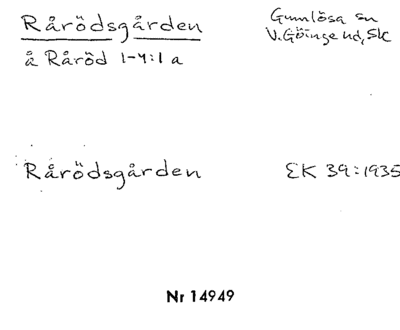 Rårödsgården
Gumlösa sn
V. Göinge hd, Sk
å Råröd 1-4:1 a
Rårödsgården
EK 39:1935
Nr 14949